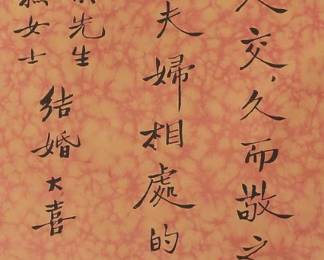 人交，久而敬之
夫婦相處的
先生
女士
結婚大喜